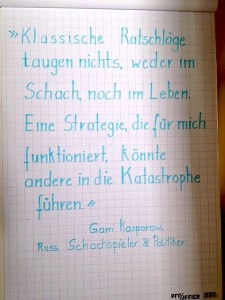 »Klassische Ratschläge
taugen nichts, weder im
Schach, noch im Leben.
Eine Strategie, die für mich
funktioniert, könnte
andere in die Katastrophe
führen.«
Garri Kasparow,
Russ. Schachspieler & Politiker
pro OFFICE